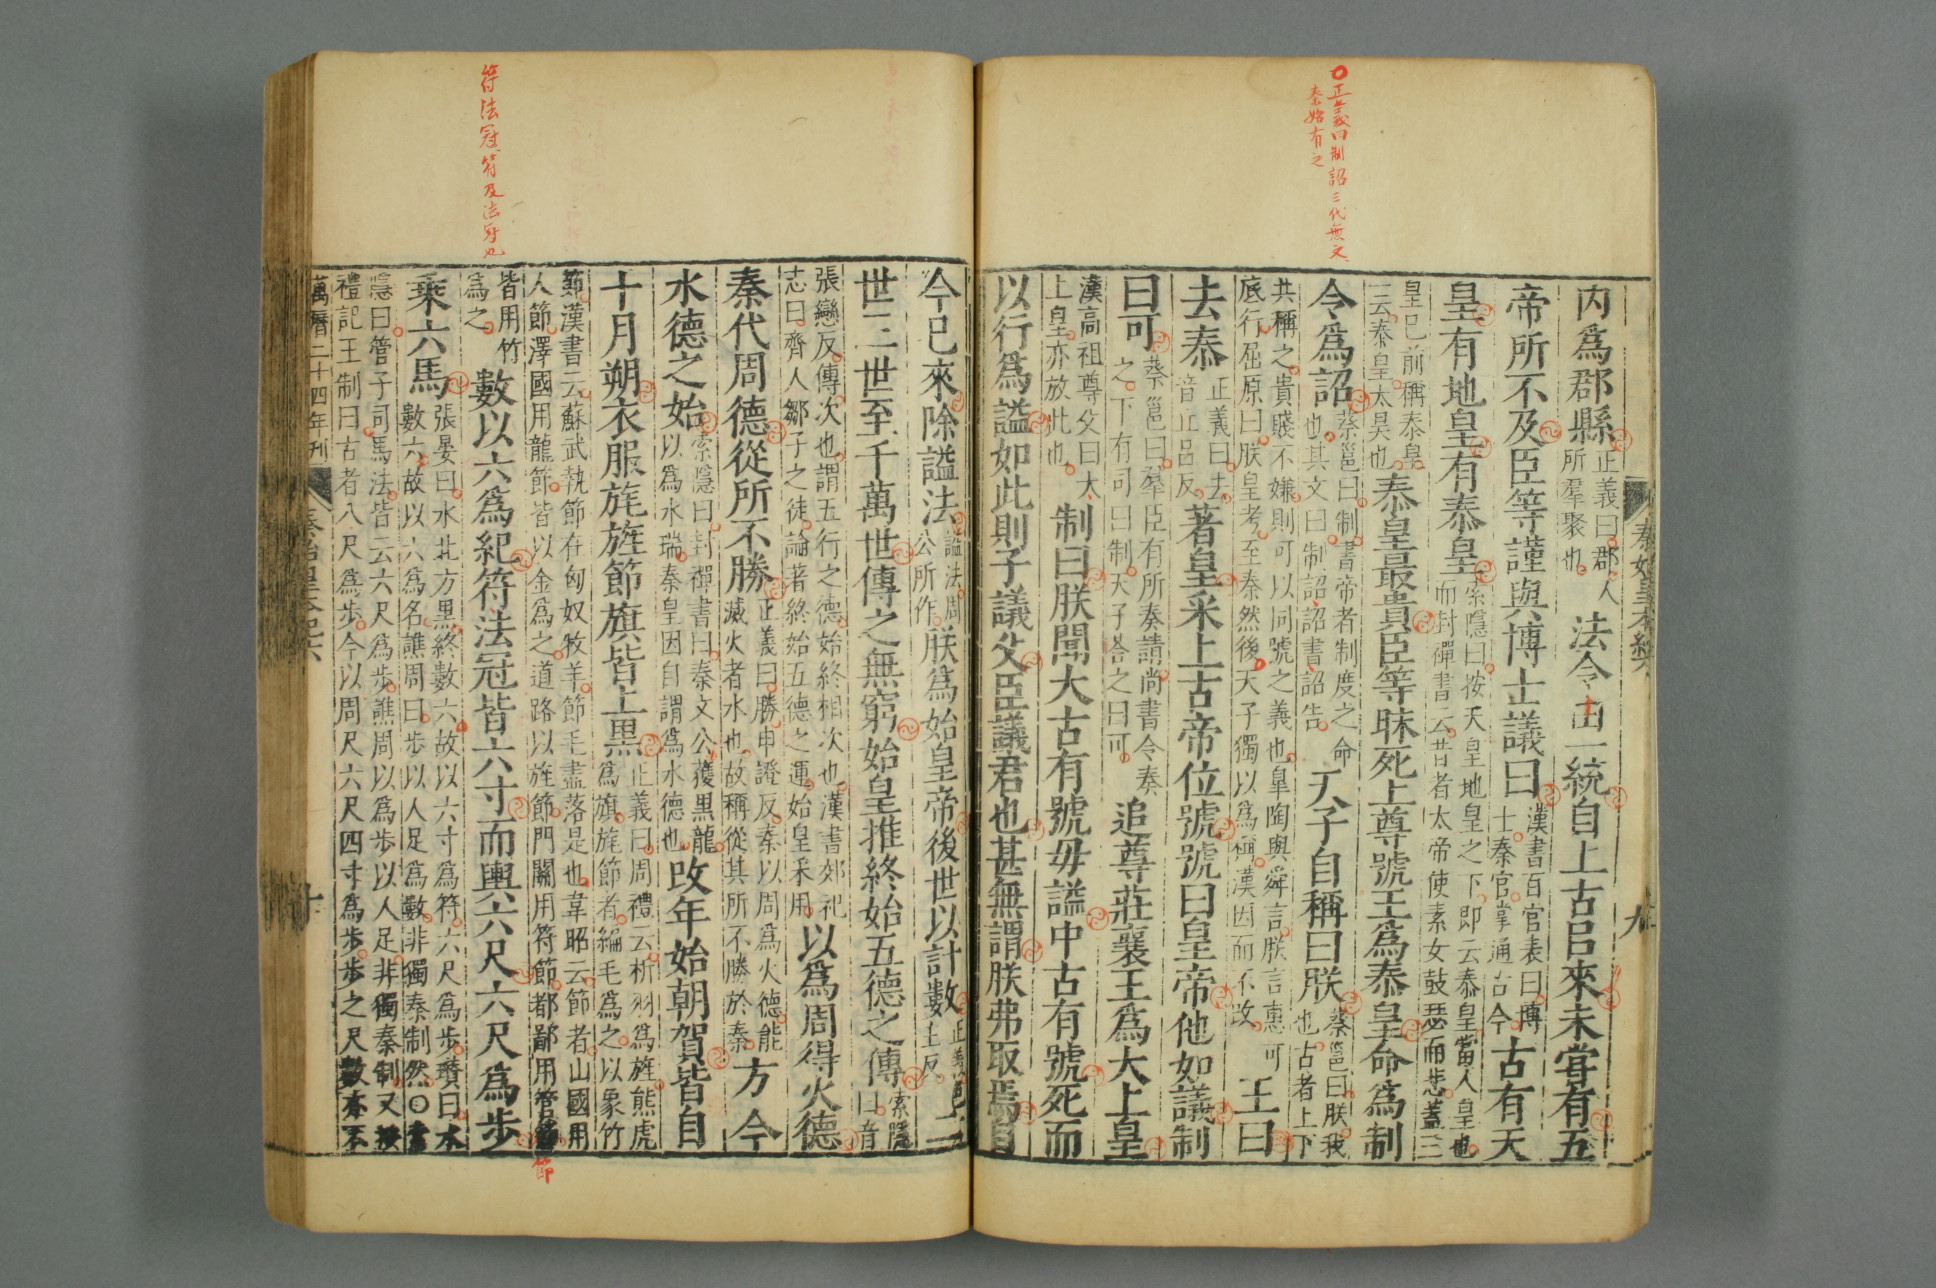 ○正義曰制詔三代無文
秦始有之
秦始皇本紀六 九
內爲郡縣
正義曰郡人
所羣聚也
法令由一統自上古㠯來未嘗有五
帝所不及臣等謹與博士議曰
漢書百官表曰博
士秦官掌通古今
古有天
皇有地皇有泰皇
索隱曰按天皇地皇之下即云泰皇當人皇也
而封禪書云昔者太帝使素女鼓瑟而悲蓋三
皇已前稱泰皇
一云泰皇太昊也
泰皇最貴臣等昧死上尊號王爲泰皇命爲制
令爲詔
蔡邕曰制書帝者制度之命
也其文曰制詔詔書詔告
天子自稱曰朕
蔡邕曰朕我
也古者上下
共稱之貴賤不嫌則可以同號之義也臯陶與舜言朕言惠可
底行屈原曰朕皇考至秦然後天子獨以爲稱漢因而不改
王曰
去泰
正義曰去
音丘呂反
著皇采上古帝位號號曰皇帝他如議制
曰可
蔡邕曰羣臣有所奏請尚書令奏
之下有司曰制天子荅之曰可
追尊莊襄王爲大上皇
漢高祖尊父曰太
上皇亦放此也
制曰朕聞大古有號毋謚中古有號死而
以行爲謚如此則子議父臣議君也甚無謂朕弗取焉自
符法冠 符及法冠也
今已來除謚法
謚法周
公所作
朕爲始皇帝後世以計數
正義
主反
二
世三世至千萬世傳之無窮始皇推終始五德之傳
索隱
曰音
張戀反傳次也謂五行之德始終相次也漢書郊祀
志曰齊人鄒子之徒論著終始五德之運始皇采用
以爲周得火德
秦代周德從所不勝
正義曰勝申證反秦以周爲火德能
滅火者水也故稱從其所不勝於秦
方今
水德之始
索隱曰封禪書曰秦文公獲黑龍
以爲水瑞秦皇因自謂爲水德也
改年始朝賀皆自
十月朔衣服旄旌節旗皆上黑
正義曰周禮云析羽爲旌熊虎
爲旗旄節者編毛爲之以象竹
節漢書云蘇武執節在匈奴牧羊節毛盡落是也韋昭云節者山國用
人節澤國用龍節皆以金爲之道路以旌節門關用符節都鄙用管節
節
皆用竹
爲之
數以六爲紀符法冠皆六寸而輿六尺六尺爲步
乘六馬
張晏曰水北方黑終數六故以六寸爲符六尺爲步瓚曰水
數六故以六爲名譙周曰步以人足爲數非獨秦制然○索
隱曰管子司馬法皆云六尺爲步譙周以爲步以人足非獨秦制又按
禮記王制曰古者八尺爲步今以周尺六尺四寸爲步步之尺數亦不
萬曆二十四年刊 秦始皇本紀六 十